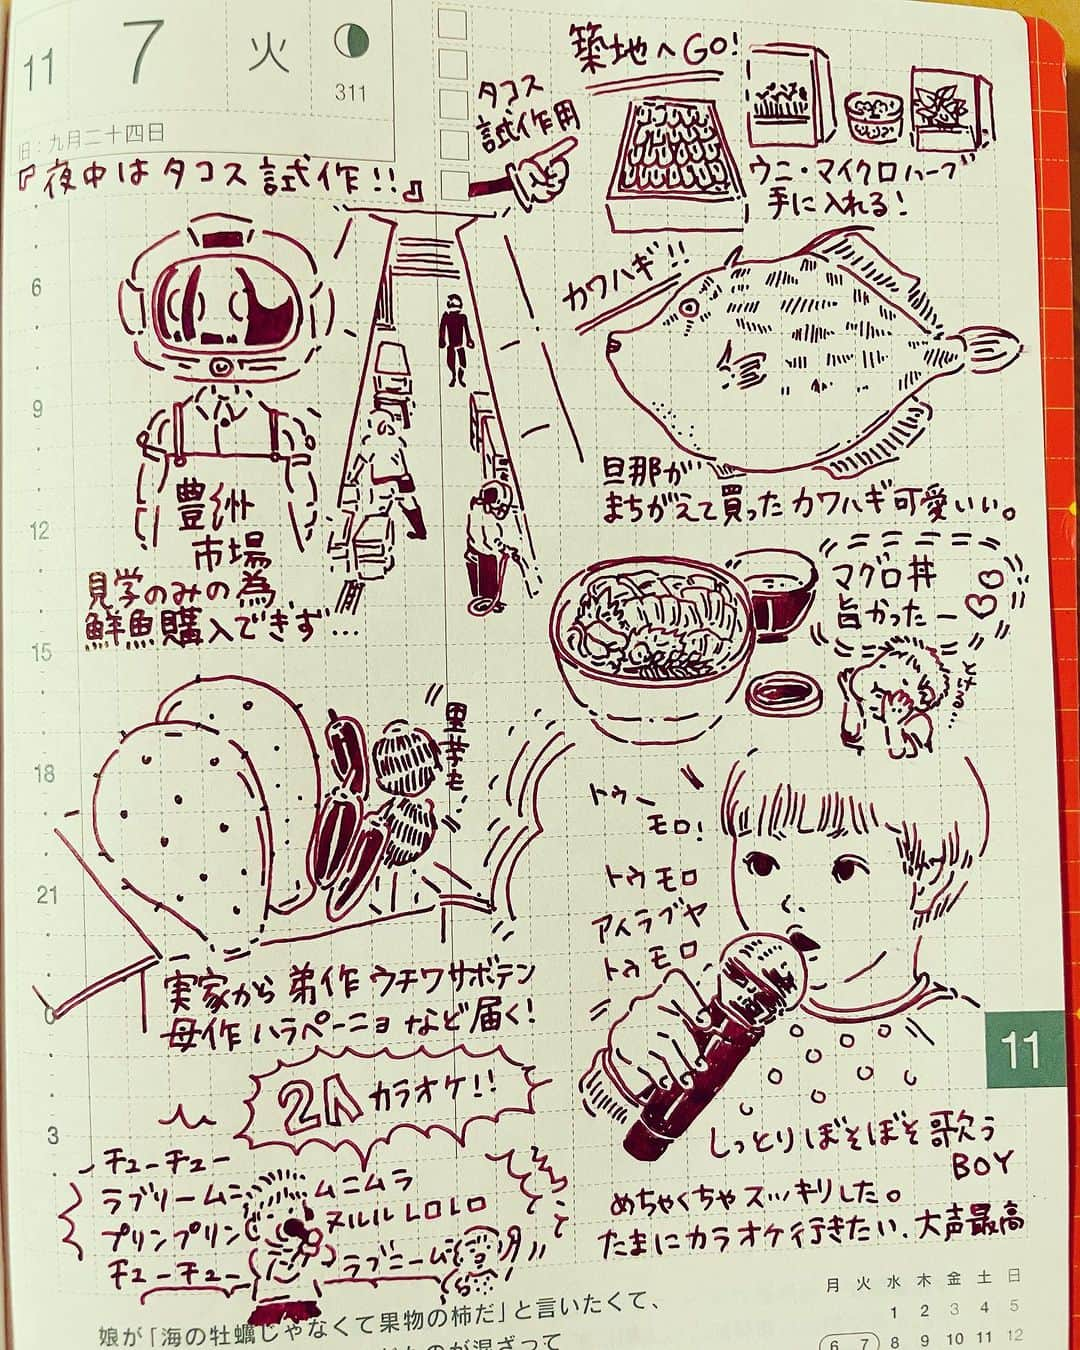 11 7 火
311
旧:九月二十四日
『夜中はタコス試作!!』
タコス
試作用
築地へGO!
ウニ・マイクロハーブ
手に入れる!
カワハギ!!
旦那が
まちがえて買ったカワハギ可愛いい。
豊洲
市場
見学のみの為
鮮魚購入できず…
マグロ丼
旨かったー
とける…
6
9
12
15
18
21
0
3
実家から弟作ウチワサボテン
母作ハラペーニョなど届く!
トゥー
モロ!
トゥモロ
アイラブヤ
トゥモロ
11
しっとりぼそぼそ歌う
BOY
2人カラオケ!!
チューチュー
ラブリームニ ムニムラ
プリンプリン ヌルル レロレロ
チューチュー ラブニーム
めちゃくちゃスッキリした。
たまにカラオケ行きたい、大声最高
娘が「海の牡蠣じゃなくて果物の柿だ」と言いたくて、
ものが混ざって
月 火 水 木 金 土 日
1 2 3 4 5
6 7 8 9 10 11 12